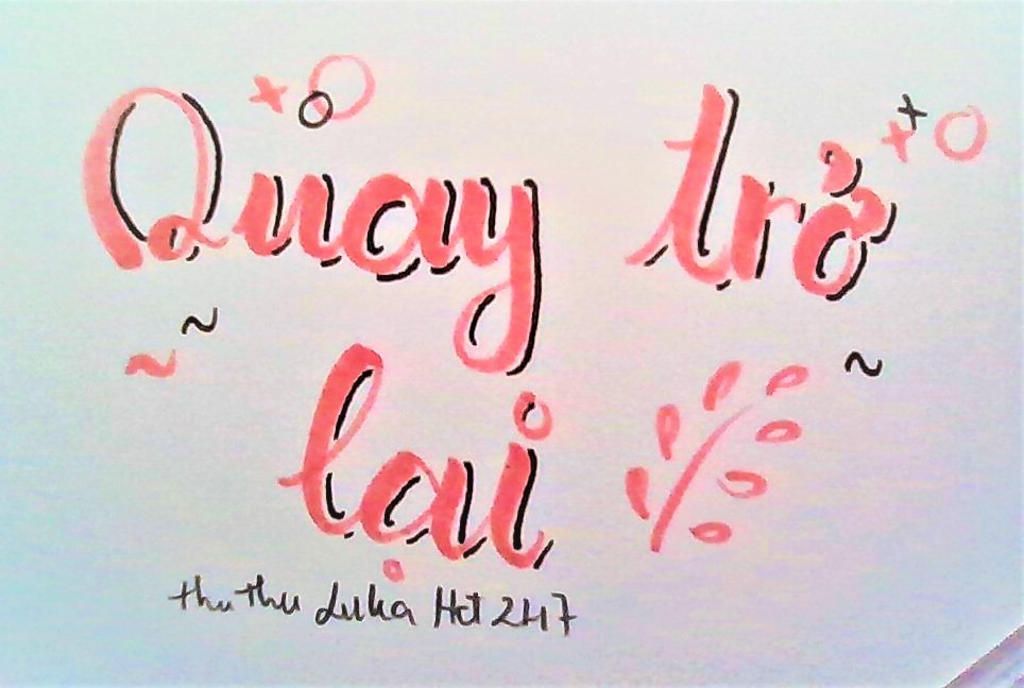 Quay trở
lại
thuthu Luka Hot 247